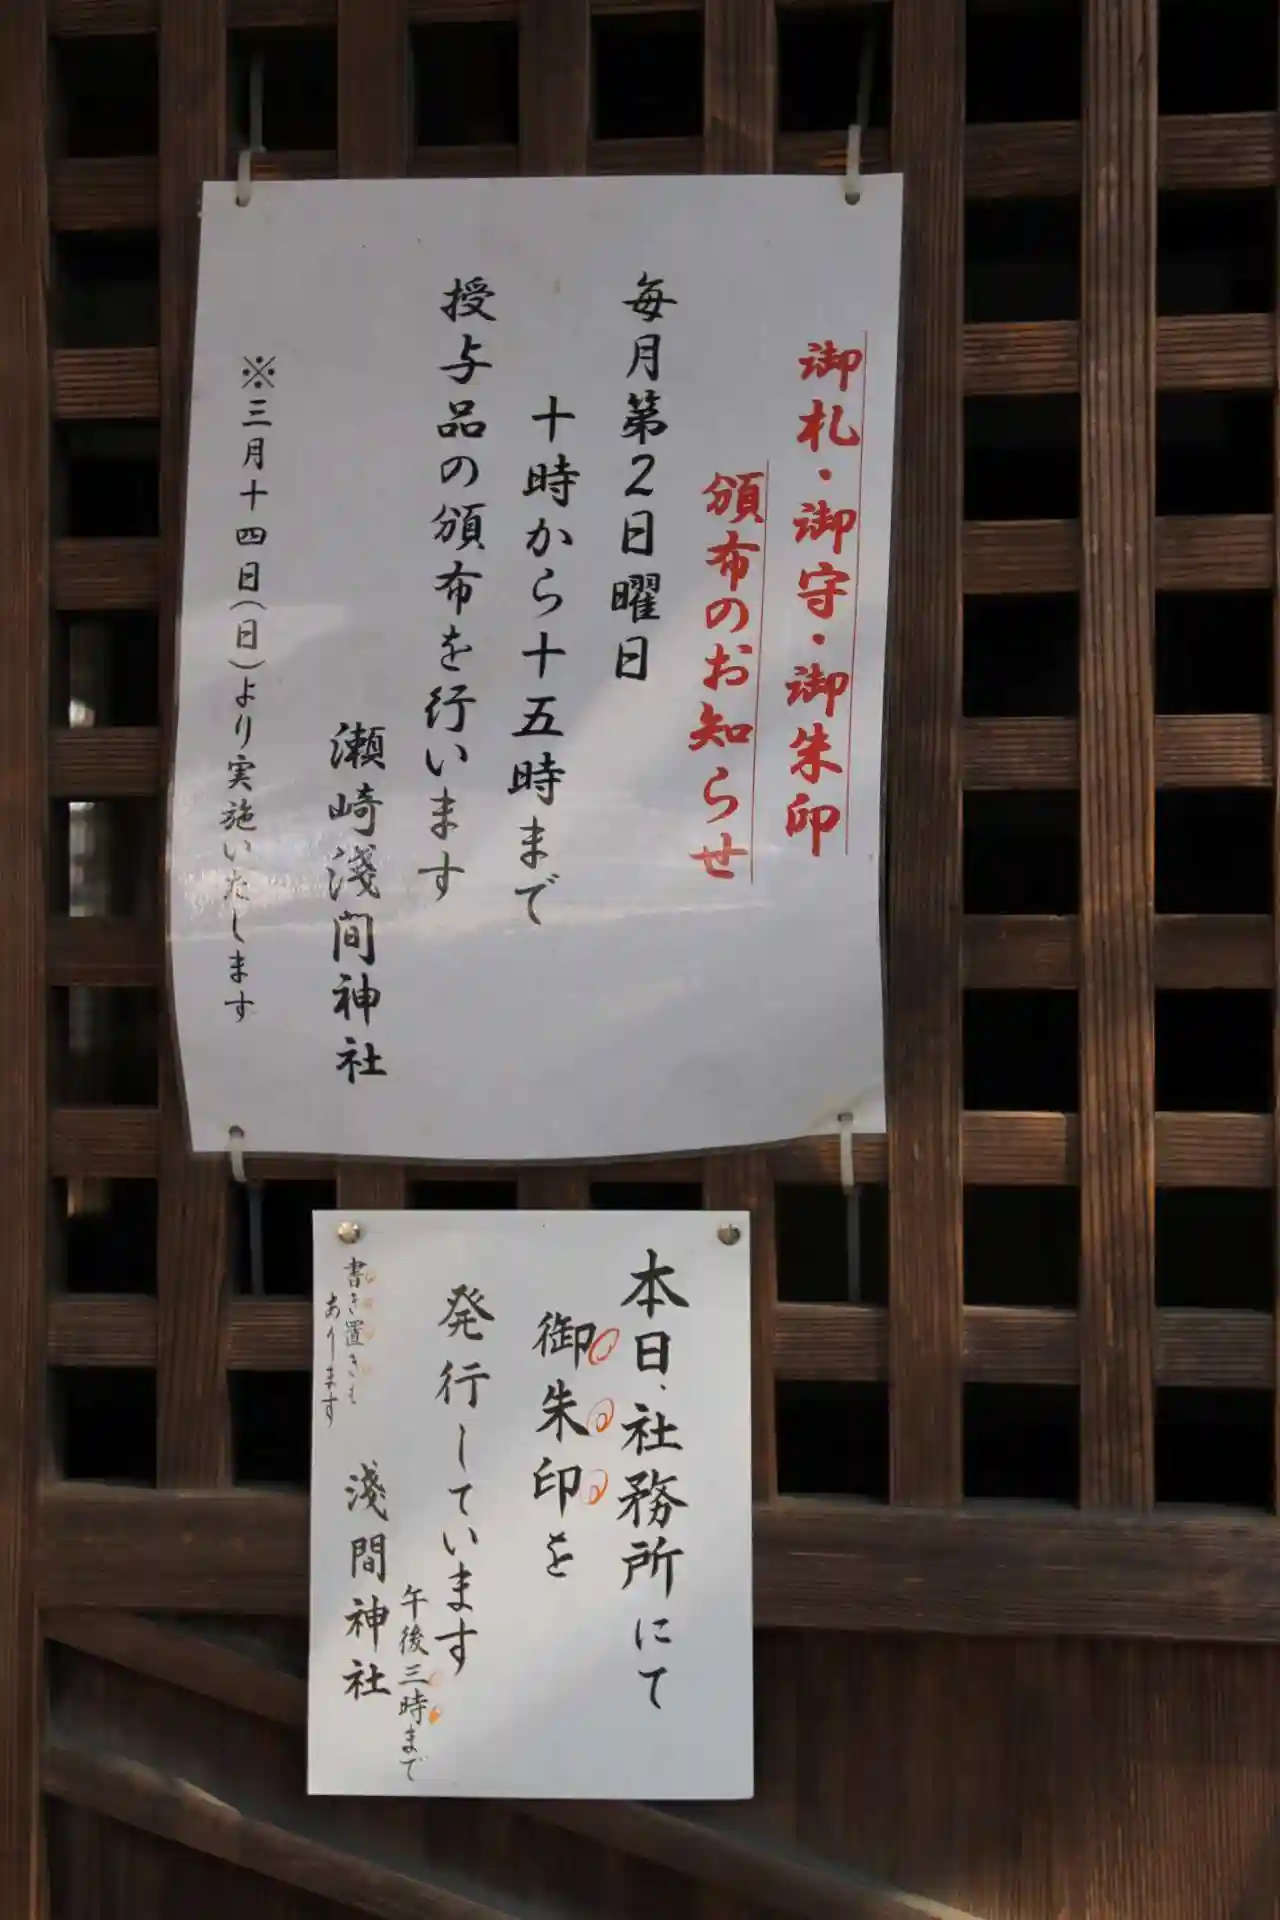 御札・御守・御朱印
頒布のお知らせ
毎月第2日曜日
十時から十五時まで
授与品の頒布を行います
瀬崎淺間神社
※三月十四日(日)より実施いたします
本日、社務所にて
御朱印を
発行しています
午後三時まで
淺間神社
書き置きも
あります